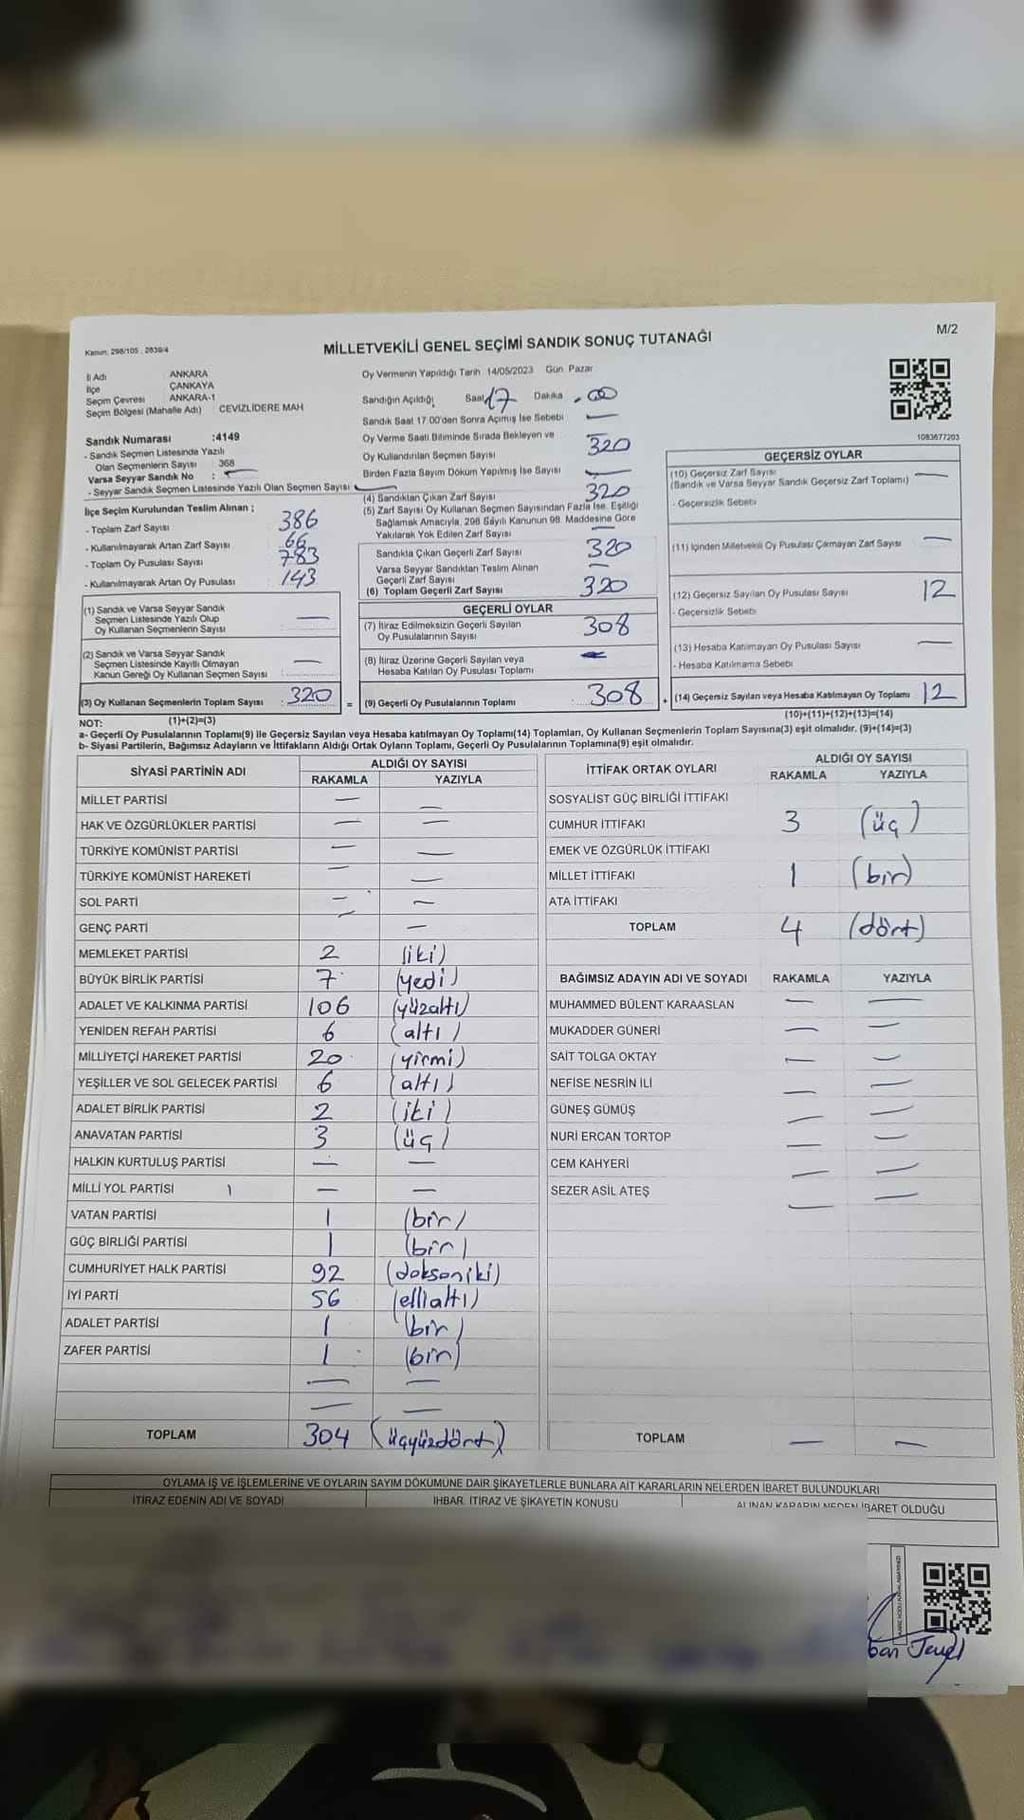 M/2
Kanun: 298/105 , 2839/4
MİLLETVEKİLİ GENEL SEÇİMİ SANDIK SONUÇ TUTANAĞI
İl Adı ANKARA
İlçe ÇANKAYA
Seçim Çevresi ANKARA-1
Seçim Bölgesi (Mahalle Adı) CEVİZLİDERE MAH
Sandık Numarası :4149
- Sandık Seçmen Listesinde Yazılı
Olan Seçmenlerin Sayısı : 368
Varsa Seyyar Sandık No : —
- Seyyar Sandık Seçmen Listesinde Yazılı Olan Seçmen Sayısı : —
İlçe Seçim Kurulundan Teslim Alınan ;
- Toplam Zarf Sayısı 386
- Kullanılmayarak Artan Zarf Sayısı 66
- Toplam Oy Pusulası Sayısı 783
- Kullanılmayarak Artan Oy Pusulası 143
(1) Sandık ve Varsa Seyyar Sandık
Seçmen Listesinde Yazılı Olup
Oy Kullanan Seçmenlerin Sayısı —
(2) Sandık ve Varsa Seyyar Sandık
Seçmen Listesinde Kayıtlı Olmayan
Kanun Gereği Oy Kullanan Seçmen Sayısı —
(3) Oy Kullanan Seçmenlerin Toplam Sayısı : 320
Oy Vermenin Yapıldığı Tarih 14/05/2023 Gün Pazar
Sandığın Açıldığı Saat 17 Dakika . 00
Sandık Saat 17.00'den Sonra Açılmış İse Sebebi —
Oy Verme Saati Bitiminde Sırada Bekleyen ve —
Oy Kullandırılan Seçmen Sayısı 320
Birden Fazla Sayım Döküm Yapılmış İse Sayısı —
(4) Sandıktan Çıkan Zarf Sayısı 320
(5) Zarf Sayısı Oy Kullanan Seçmen Sayısından Fazla İse, Eşitliği
Sağlamak Amacıyla, 298 Sayılı Kanunun 98. Maddesine Göre
Yakılarak Yok Edilen Zarf Sayısı —
Sandıkta Çıkan Geçerli Zarf Sayısı 320
Varsa Seyyar Sandıktan Teslim Alınan
Geçerli Zarf Sayısı —
(6) Toplam Geçerli Zarf Sayısı 320
GEÇERLİ OYLAR
(7) İtiraz Edilmeksizin Geçerli Sayılan
Oy Pusulalarının Sayısı 308
(8) İtiraz Üzerine Geçerli Sayılan veya
Hesaba Katılan Oy Pusulası Toplamı —
= (9) Geçerli Oy Pusulalarının Toplamı : 308
1083677203
GEÇERSİZ OYLAR
(10) Geçersiz Zarf Sayısı —
(Sandık ve Varsa Seyyar Sandık Geçersiz Zarf Toplamı)
- Geçersizlik Sebebi
(11) İçinden Milletvekili Oy Pusulası Çıkmayan Zarf Sayısı —
(12) Geçersiz Sayılan Oy Pusulası Sayısı 12
- Geçersizlik Sebebi
(13) Hesaba Katılmayan Oy Pusulası Sayısı —
- Hesaba Katılmama Sebebi
+ (14) Geçersiz Sayılan veya Hesaba Katılmayan Oy Toplamı 12
NOT: (1)+(2)=(3) (10)+(11)+(12)+(13)=(14)
a- Geçerli Oy Pusulalarının Toplamı(9) ile Geçersiz Sayılan veya Hesaba katılmayan Oy Toplamı(14) Toplamları, Oy Kullanan Seçmenlerin Toplam Sayısına(3) eşit olmalıdır. (9)+(14)=(3)
b- Siyasi Partilerin, Bağımsız Adayların ve İttifakların Aldığı Ortak Oyların Toplamı, Geçerli Oy Pusulalarının Toplamına(9) eşit olmalıdır.
SİYASİ PARTİNİN ADI ALDIĞI OY SAYISI
RAKAMLA YAZIYLA
MİLLET PARTİSİ — —
HAK VE ÖZGÜRLÜKLER PARTİSİ — —
TÜRKİYE KOMÜNİST PARTİSİ — —
TÜRKİYE KOMÜNİST HAREKETİ — —
SOL PARTİ — —
GENÇ PARTİ — —
MEMLEKET PARTİSİ 2 (iki)
BÜYÜK BİRLİK PARTİSİ 7 (yedi)
ADALET VE KALKINMA PARTİSİ 106 (yüzaltı)
YENİDEN REFAH PARTİSİ 6 (altı)
MİLLİYETÇİ HAREKET PARTİSİ 20 (yirmi)
YEŞİLLER VE SOL GELECEK PARTİSİ 6 (altı)
ADALET BİRLİK PARTİSİ 2 (iki)
ANAVATAN PARTİSİ 3 (üç)
HALKIN KURTULUŞ PARTİSİ — —
MİLLİ YOL PARTİSİ 1 — —
VATAN PARTİSİ 1 (bir)
GÜÇ BİRLİĞİ PARTİSİ 1 (bir)
CUMHURİYET HALK PARTİSİ 92 (doksaniki)
İYİ PARTİ 56 (ellialtı)
ADALET PARTİSİ 1 (bir)
ZAFER PARTİSİ 1 (bir)
— —
— —
TOPLAM 304 (üçyüzdört)
İTTİFAK ORTAK OYLARI ALDIĞI OY SAYISI
RAKAMLA YAZIYLA
SOSYALİST GÜÇ BİRLİĞİ İTTİFAKI
CUMHUR İTTİFAKI 3 (üç)
EMEK VE ÖZGÜRLÜK İTTİFAKI
MİLLET İTTİFAKI 1 (bir)
ATA İTTİFAKI
TOPLAM 4 (dört)
BAĞIMSIZ ADAYIN ADI VE SOYADI RAKAMLA YAZIYLA
MUHAMMED BÜLENT KARAASLAN — —
MUKADDER GÜNERİ — —
SAİT TOLGA OKTAY — —
NEFİSE NESRİN İLİ — —
GÜNEŞ GÜMÜŞ — —
NURİ ERCAN TORTOP — —
CEM KAHYERİ — —
SEZER ASİL ATEŞ — —
TOPLAM — —
OYLAMA İŞ VE İŞLEMLERİNE VE OYLARIN SAYIM DÖKÜMÜNE DAİR ŞİKAYETLERLE BUNLARA AİT KARARLARIN NELERDEN İBARET BULUNDUKLARI
İTİRAZ EDENİN ADI VE SOYADI İHBAR, İTİRAZ VE ŞİKAYETİN KONUSU ALINAN KARARIN NEDEN İBARET OLDUĞU